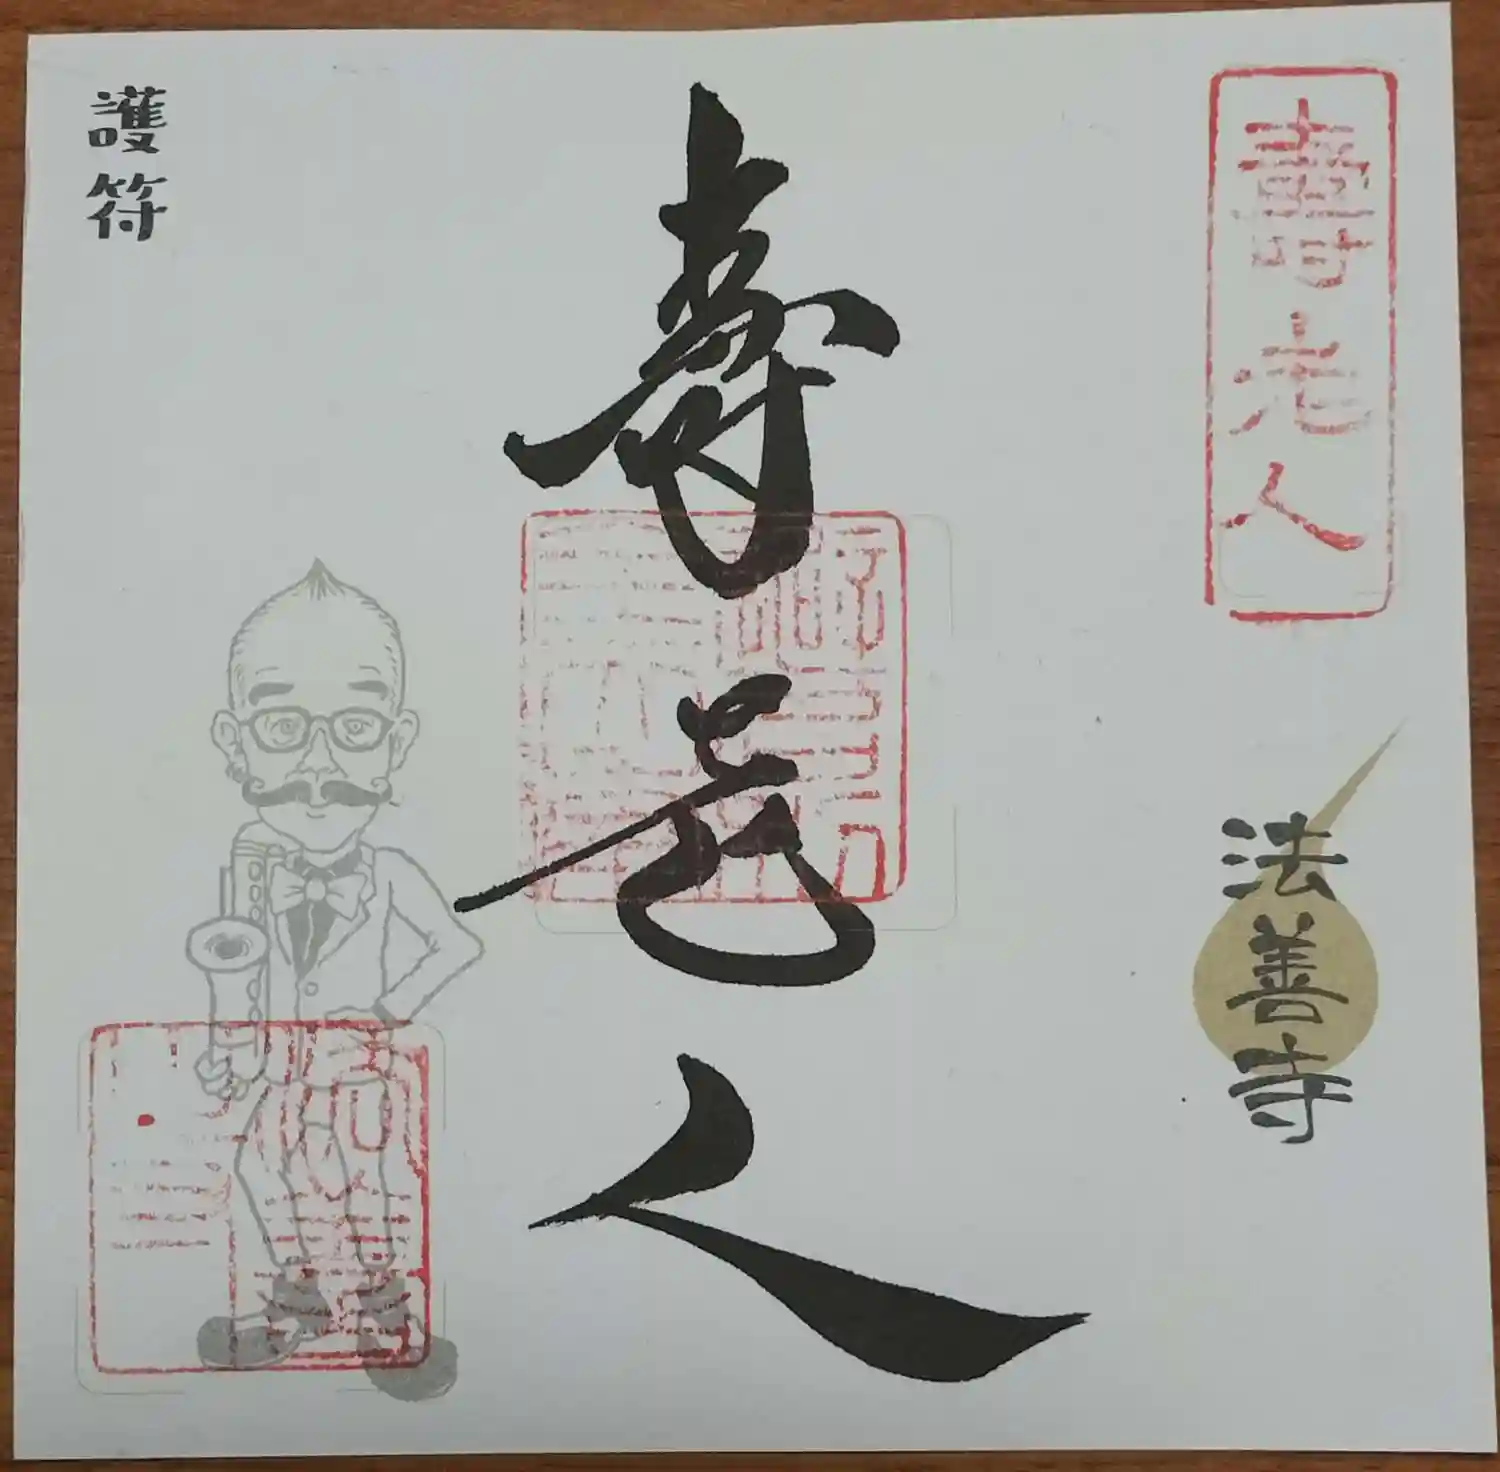 壽老人
法善寺
寿老人
護符